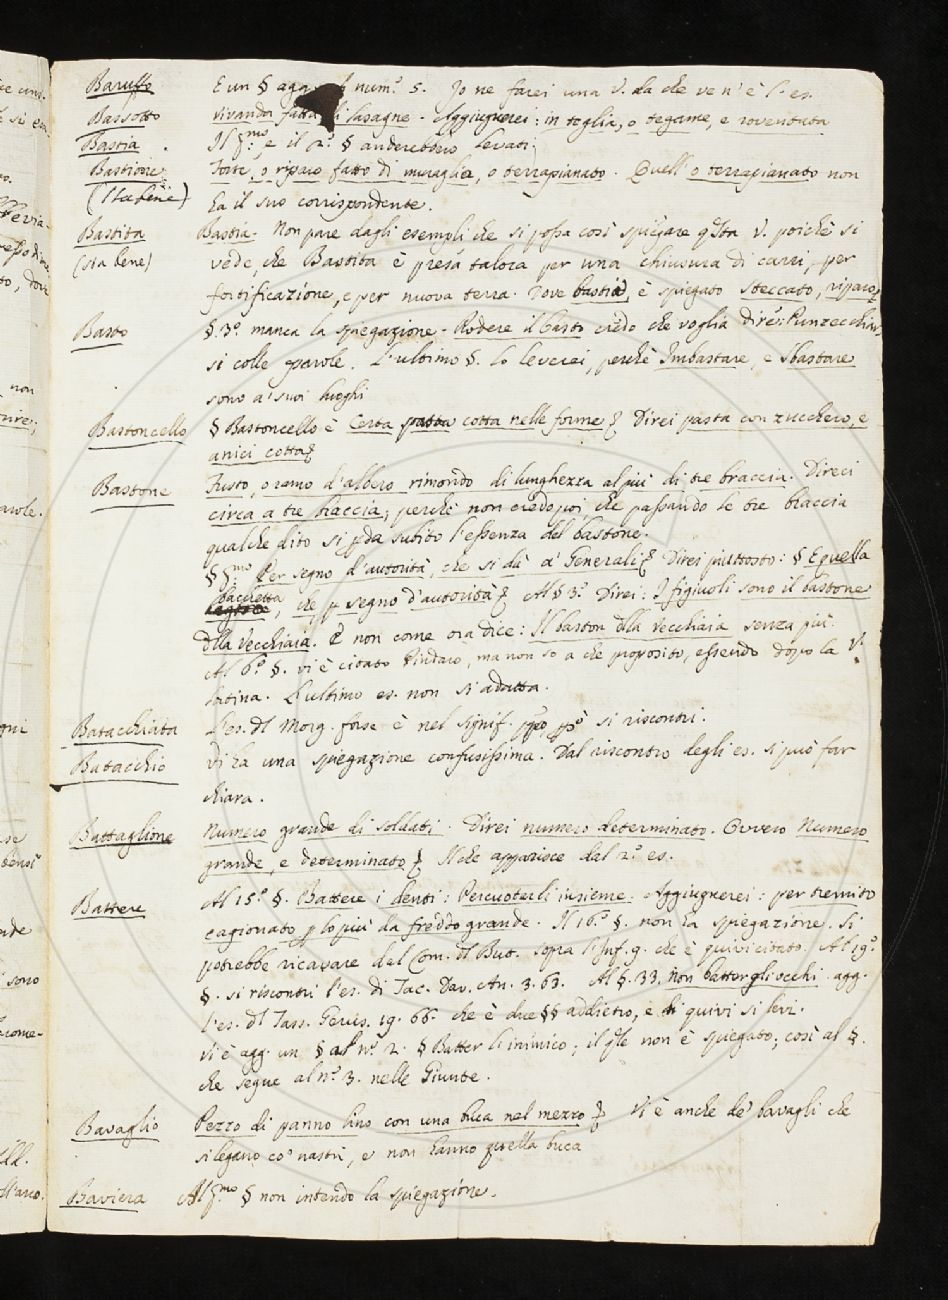 Baruffo E un § agg. num.º 5. Io ne farei una V. da che ve n'è l'es.
Bassotto vivanda fatta di lasagne. Aggiugnerei: in teglia, o tegame, e roventata
Bastia. Il p.mo, e il 2.º § anderebbero levati.
Bastione Forte, o riparo fatto di muraglia, o terrapianato. Quell'o terrapianato non
(Sta bene) ha il suo corrispondente.
Bastita Bastia. Non pare dagli esempli che si possa così spiegare qsta V. poichè si
(sta bene) vede, che Bastita è presa talora per una chiusura di carri, per
fortificazione, e per nuova terra. Dove bastia, è spiegato steccato, riparo
Basto §. 3.º manca la spiegazione. Rodere il basto credo che voglia dire: Punzecchiar
si colle parole. L'ultimo §. lo leverei, perchè Imbastare, e Sbastare
sono a' suoi luoghi
Bastoncello § Bastoncello è Certa patta cotta nelle forme Direi pasta con zucchero, e
anici cotta
Bastone Fusto, o ramo d'albero rimondo di lunghezza al più di tre braccia. Direi
circa a tre braccia; perchè non credo poi, che passando le tre braccia
qualche dito si pda subito l'essenza del bastone.
§ p.mo Per segno d'autorità, che si dà a' Generali Direi piuttosto: § E quella
bacchetta
, che, p segno d'autorità Al § 3.º Direi: I figiuoli sono il bastone
dlla vecchiaia. E non come ora dice: Il baston dlla vecchiaia senza più.
Al 6.º §. vi è citato Pindaro, ma non so a che proposito, essendo dopo la V.
latina. L'ultimo es. non si adatta.
Batacchiata L'es. dl Morg. forse è nel signif. si riscontri.
Batacchio Vi ha una spiegazione confusissima. Dal riscontro degli es. si può far
chiara.
Battaglione Numero grande di soldati. Direi numero determinato. Ovvero Numero
grande, e determinato Il che apparisce dal 2.º es.
Battere Al 15.º §. Battere i denti: Percuoterli insieme: Aggiugnerei: per tremito
cagionato p lo più da freddo grande. Il 16.º §. non ha spiegazione. Si
potrebbe ricavare dal Com. dl But. sopra l'Inf. 9. che è quivi citato. Al 19.º
§. si riscontri l'es. di Tac. Dav. An. 3. 63. Al §. 33. Non batter gli occhi. agg.
l'es. dl Tass. Gerus. 19. 66. che è due §§ addietro, e di quivi si levi.
Vi è agg. un § al nº. 2. § Batter li inimico; il qle non è spiegato; così al §.
che segue al nº. 3. nelle Giunte.
Bavaglio Pezzo di panno lino con una buca nel mezzo Vi è anche de' bavagli che
si legano co' nastri, e non hanno quella buca
Baviera Al p.mo § non intendo la spiegazione.